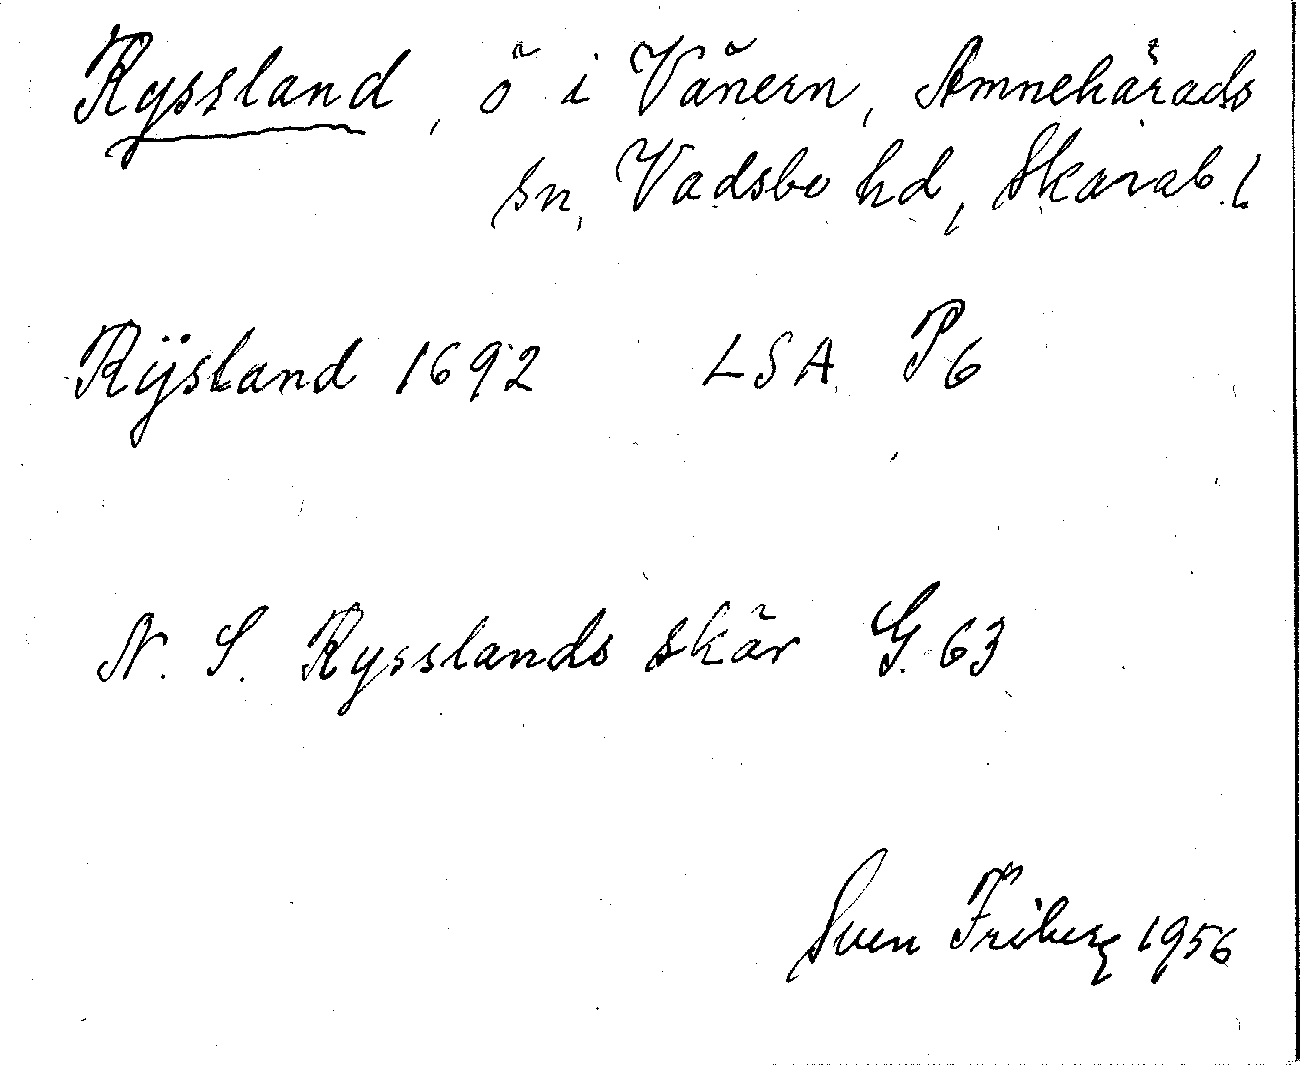 Ryssland, ö i Vänern, Amnehärads
sn, Vadsbo hd, Skarab. l
Rÿsland 1692 LSA P6
N. S. Rysslands skär G. 63
Sven Friberg 1956